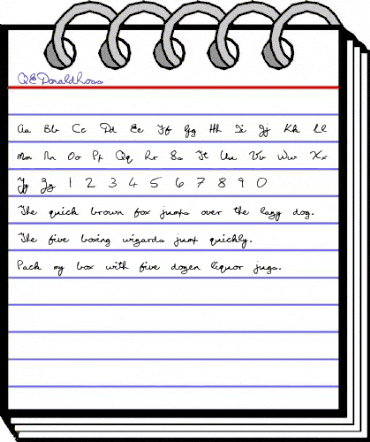 QEDonaldRoss
Aa Bb Cc Dd Ee Ff Gg Hh Ii Jj Kk Ll
Mm Nn Oo Pp Qq Rr Ss Tt Uu Vv Ww Xx
Yy Zz 1 2 3 4 5 6 7 8 9 0
The quick brown fox jumps over the lazy dog.
The five boxing wizards jump quickly.
Pack my box with five dozen liquor jugs.